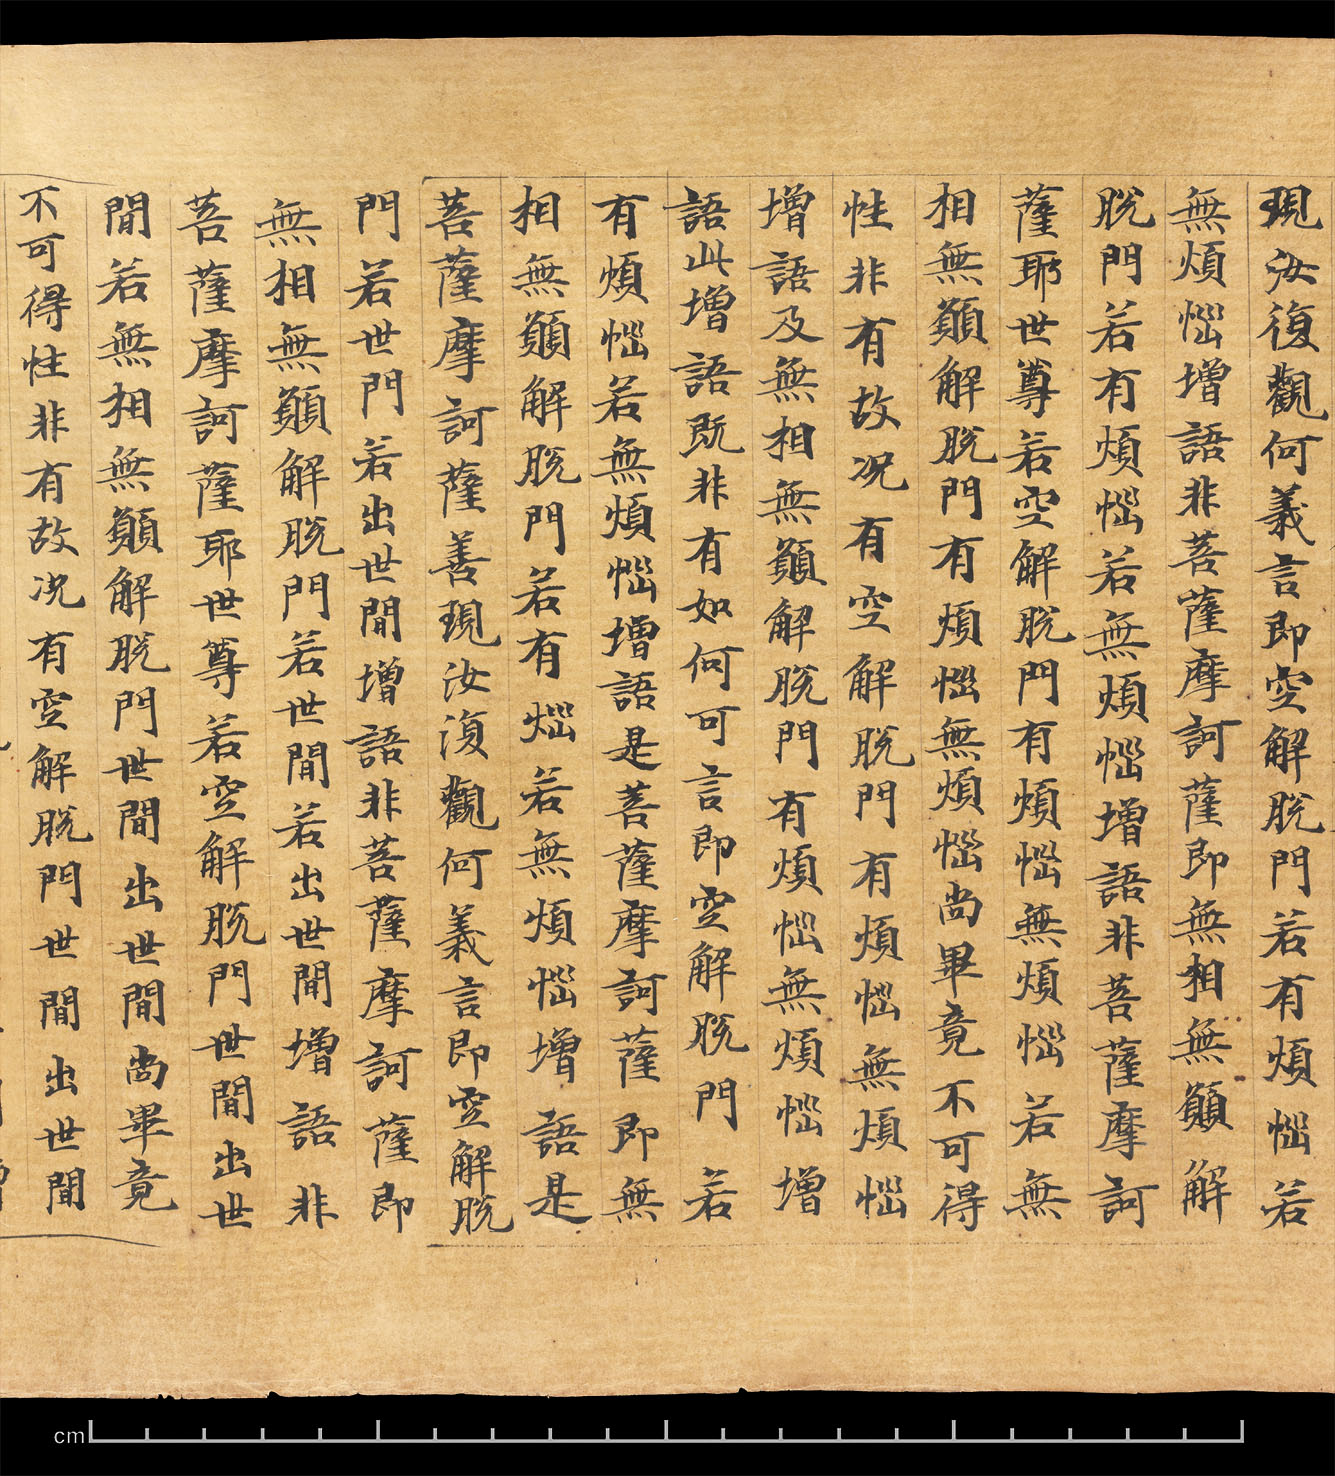 現汝復觀何義言即空解脫門若有煩惱若
無煩惱增語非菩薩摩訶薩即無相無願解
脫門若有煩惱若無煩惱增語非菩薩摩訶
薩耶世尊若空解脫門有煩惱無煩惱若無
相無願解脫門有煩惱無煩惱尚畢竟不可得
性非有故况有空解脫門有煩惱無煩惱
增語及無相無願解脫門有煩惱無煩惱增
語此增語既非有如何可言即空解脫門若
有煩惱若無煩惱增語是菩薩摩訶薩即無
相無願解脫門若有惱若無煩惱增語是
菩薩摩訶薩善現汝復觀何義言即空解脫
門若世門若出世間增語非菩薩摩訶薩即
無相無願解脫門若世間若出世間增語非
菩薩摩訶薩耶世尊若空解脫門世間出世
間若無相無願解脫門世間出世間尚畢竟
不可得性非有故况有空解脫門世間出世間
cm